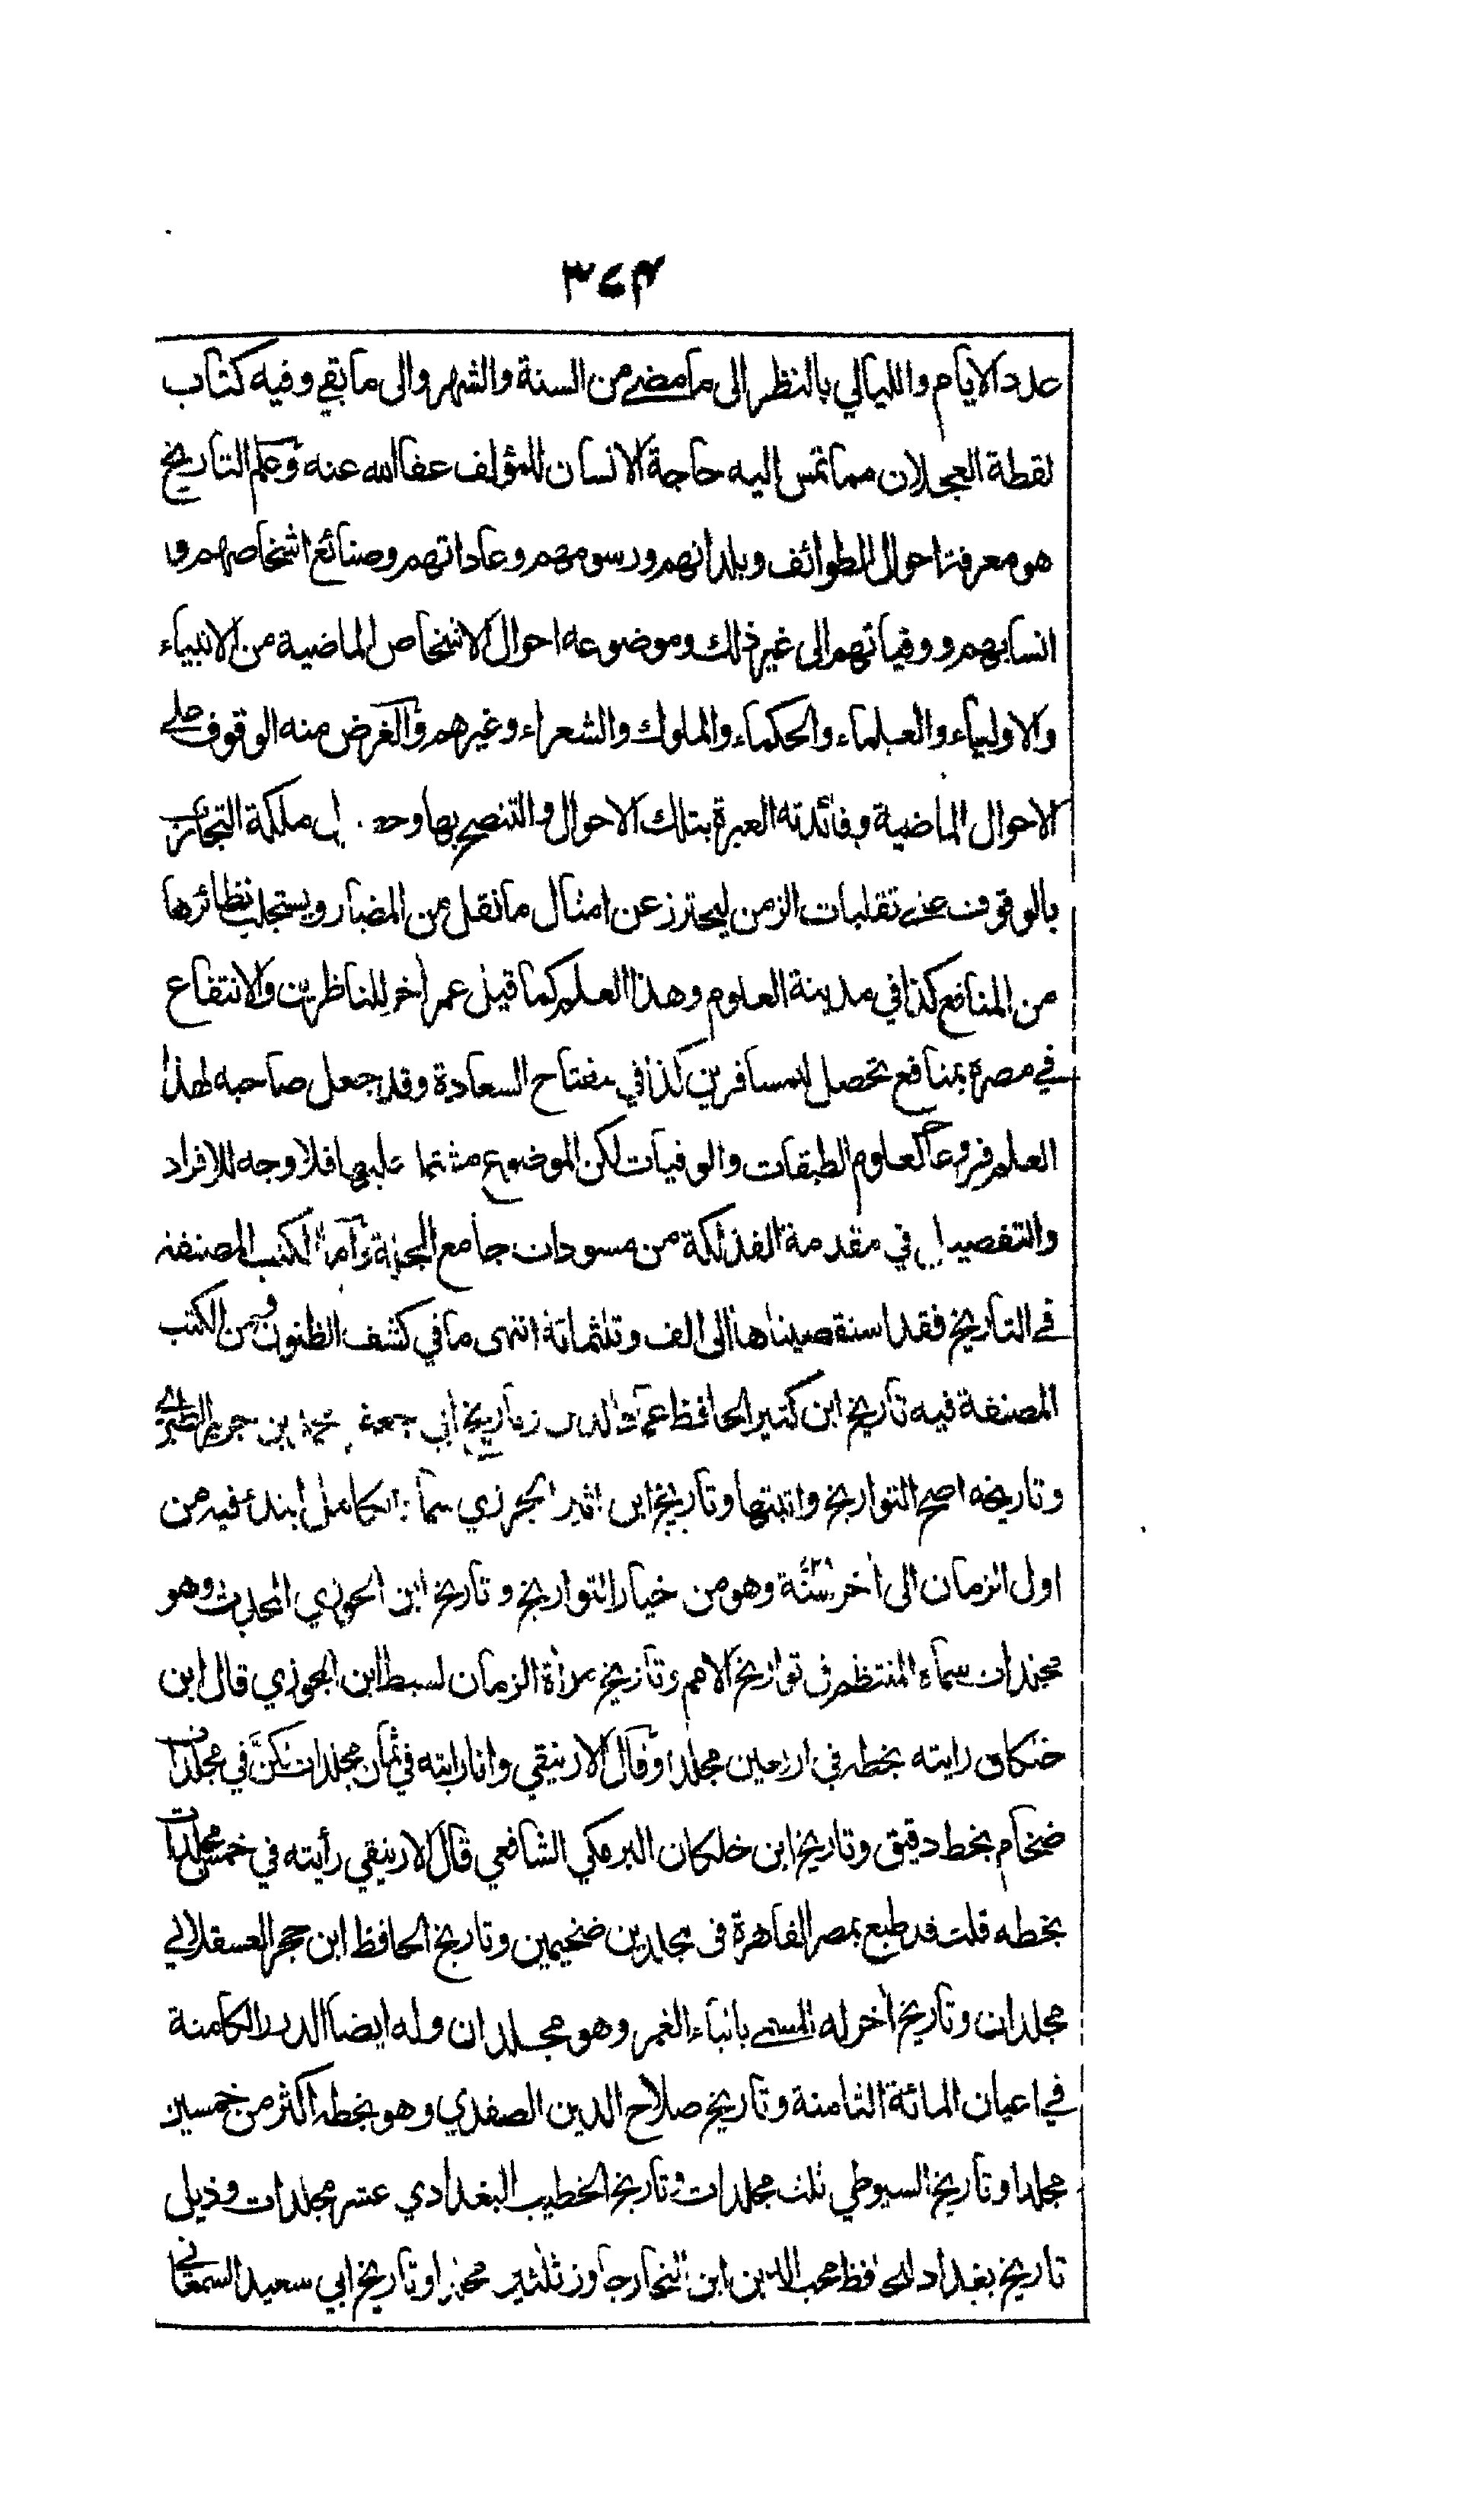 ٣٦٤
عدد الايام والليالي بالنظر الى ما مضى من السنة والشهر والى ما بقي وفيه كتاب
لقطة العجلان مما تمس اليه حاجة الانسان للمؤلف عفا الله عنه وعلم التاريخ
هو معرفة احوال الطوائف وبلدانهم ورسومهم وعاداتهم وصنائع اشخاصهم و
انسابهم ووفياتهم الى غير ذلك وموضوعه احوال الاشخاص الماضية من الانبياء
والاولياء والعلماء والحكماء والملوك والشعراء وغيرهم والغرض منه الوقوف على
الاحوال الماضية وفائدته العبرة بتلك الاحوال والتنصح بها ملكة التجارب
بالوقوف على تقلبات الزمن ليحترز عن امثال ما نقل من المضار ويستجلب نظائرها
من المنافع كذا في مدينة العلوم وهذا العلم كما قيل عمر اخر للناظرين والانتفاع
في مصره بمنافع تحصل للمسافرين كذا في مفتاح السعادة وقد جعل صاحبه لهذا
العلم فروعا كعلوم الطبقات والوفيات لكن الموضوع مشتمل عليها فلا وجه للافراد
والتفصيل في مقدمة الفذلكة من مسودات جامع المجلة واما الكتب المصنفة
في التاريخ فقد استقصيناها الى الف وثلثمائة انتهى ما في كشف الظنون ومن الكتب
المصنفة فيه تاريخ ابن كثير الحافظ عماد الدين وتاريخ ابي جعفر محمد بن جرير الطبري
وتاريخه اصح التواريخ واثبتها وتاريخ ابن اثير الجزري سماه الكامل ابتدء فيه من
اول الزمان الى اخر سنة وهو من خيار التواريخ وتاريخ ابن الجوزي المحدث وهو
مجلدات سماه المنتظم في تواريخ الامم وتاريخ مرأة الزمان لسبط ابن الجوزي قال ابن
خلكان رايته بخطه في اربعين مجلدا وقال الارنيقي وانا رايته في ثمان مجلدات لكن في مجلدات
ضخام بخط دقيق وتاريخ ابن خلكان البرمكي الشافعي قال الارنيقي رأيته في خمس مجلدات
بخطه قلت قد طبع بمصر القاهرة في مجلدين ضخيمين وتاريخ الحافظ ابن حجر العسقلاني
مجلدان وتاريخ اخر له المسمى بانباء الغمر وهو مجلدان وله ايضا الدرر الكامنة
في اعيان المائة الثامنة وتاريخ صلاح الدين الصفدي وهو بخطه اكثر من خمسين
مجلدا وتاريخ السيوطي ثلث مجلدات وتاريخ الخطيب البغدادي عشر مجلدات وذيل
تاريخ بغداد للحافظ محب الدين ابن النجار جاوز ثلثين مجلدا وتاريخ ابي سعيد السمعاني